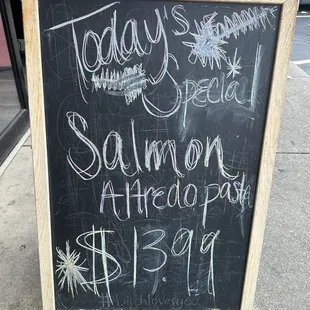 Today's
Special
Salmon
Alfredo pasta
$13.99